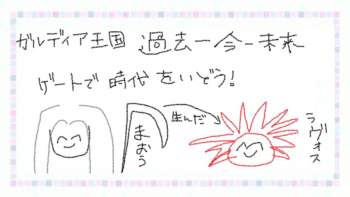 ガルディア王国 過去ー今ー未来
ゲートで時代をいどう!
まおう
生んだ
ラヴォス